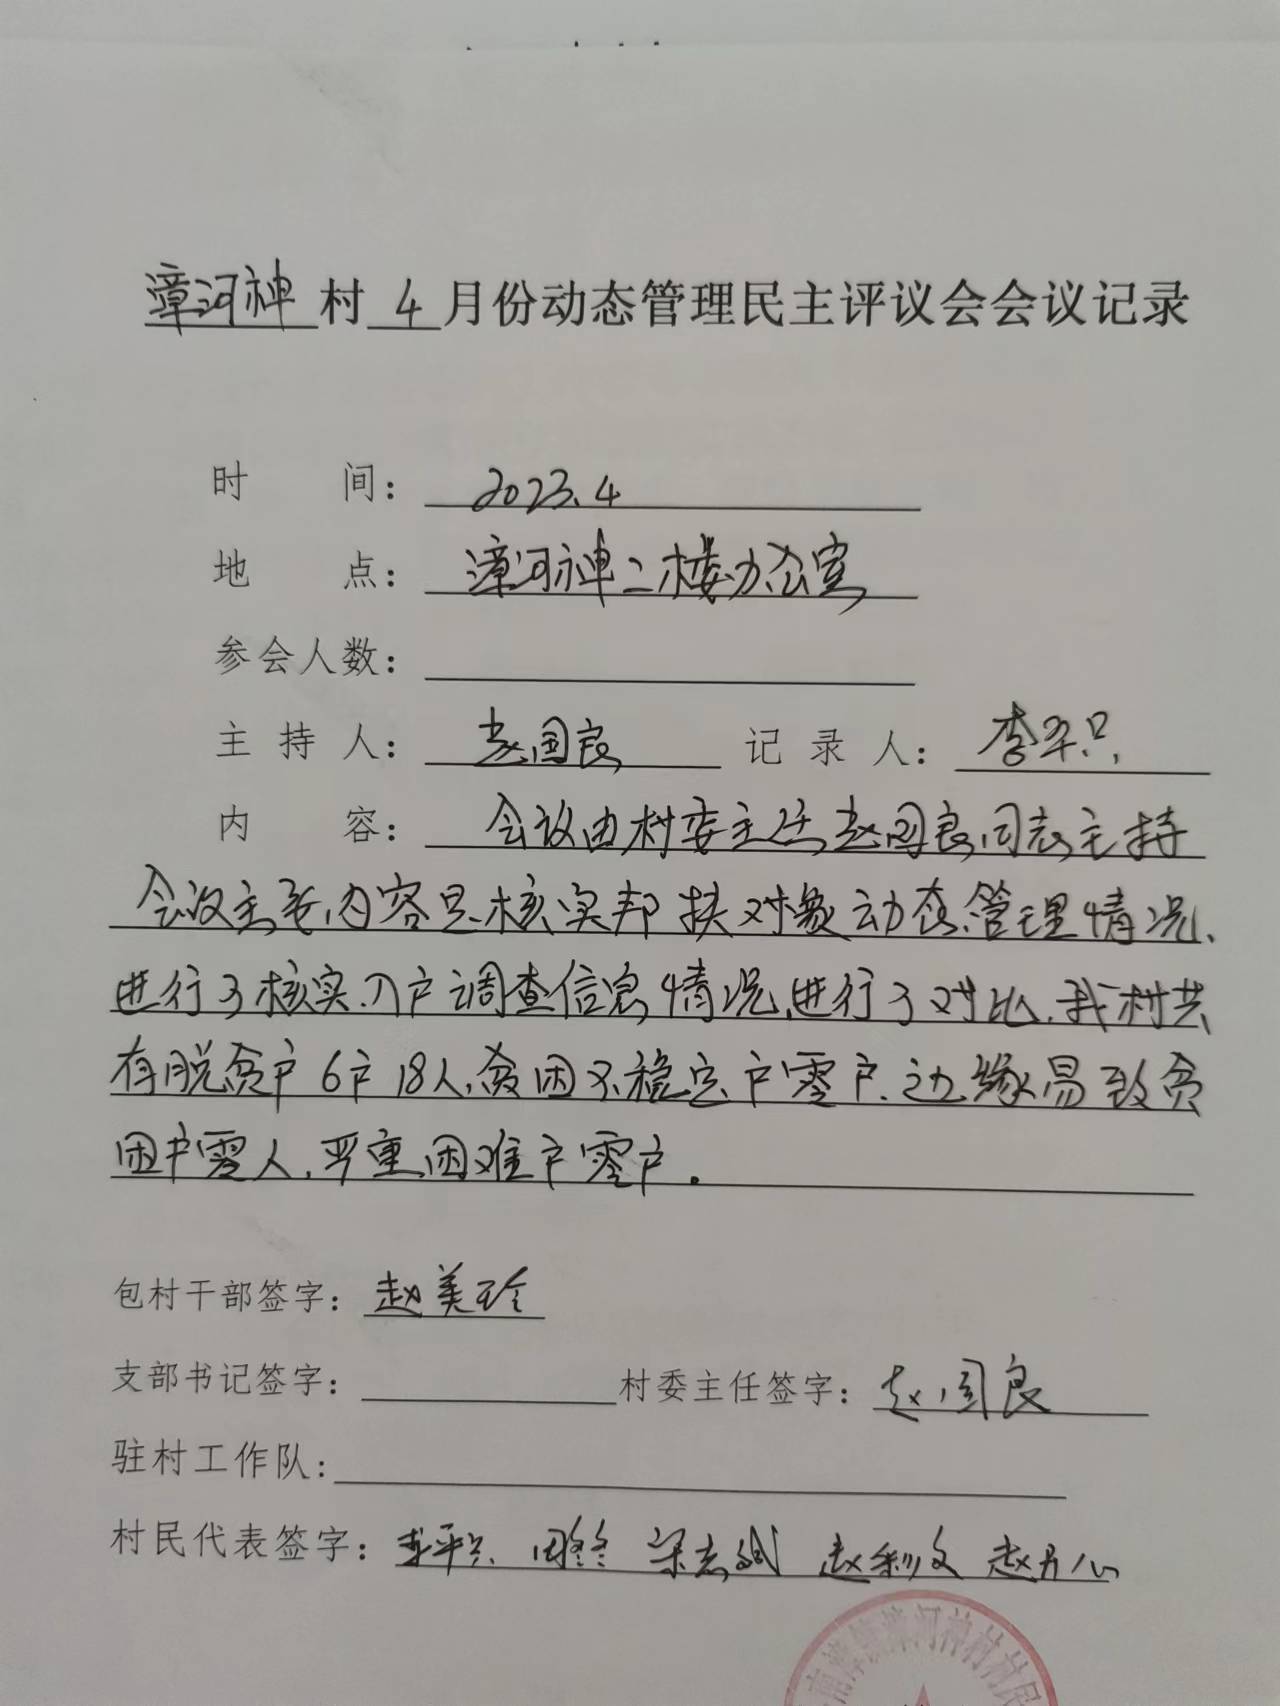 漳河神村4月份动态管理民主评议会会议记录
时 间：2023.4
地 点：漳河神二楼办公室
参会人数：
主 持 人：赵国良 记 录 人：李平只
内 容：会议由村委主任赵国良同志主持
会议主要内容是核实帮扶对象动态管理情况、
进行了核实.入户调查信息情况进行了对比.我村共
有脱贫户6户18人,贫困不稳定户零户.边缘易致贫
困户零人.严重困难户零户。
包村干部签字：赵美玲
支部书记签字： 村委主任签字：赵国良
驻村工作队：
村民代表签字：李平只 梁志斌 赵利文
漳河神村村民